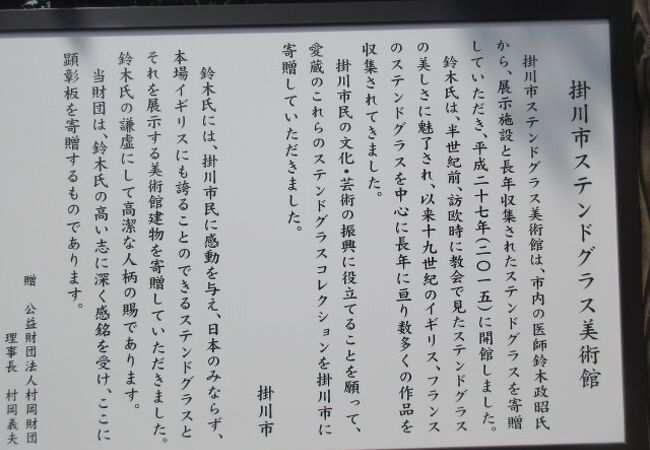 掛川市ステンドグラス美術館
掛川市ステンドグラス美術館は、市内の医師鈴木政昭氏
から、展示施設と長年収集されたステンドグラスを寄贈
していただき、平成二十七年(二〇一五)に開館しました。
鈴木氏は、半世紀前、訪欧時に教会で見たステンドグラス
の美しさに魅了され、以来十九世紀のイギリス、フランス
のステンドグラスを中心に長年に亘り数多くの作品を
収集されてきました。
掛川市民の文化・芸術の振興に役立てることを願って、
愛蔵のこれらのステンドグラスコレクションを掛川市に
寄贈していただきました。
掛川市
鈴木氏には、掛川市民に感動を与え、日本のみならず、
本場イギリスにも誇ることのできるステンドグラスと
それを展示する美術館建物を寄贈していただきました。
鈴木氏の謙虚にして高潔な人柄の賜であります。
当財団は、鈴木氏の高い志に深く感銘を受け、ここに
顕彰板を寄贈するものであります。
贈 公益財団法人村岡財団
理事長 村岡義夫